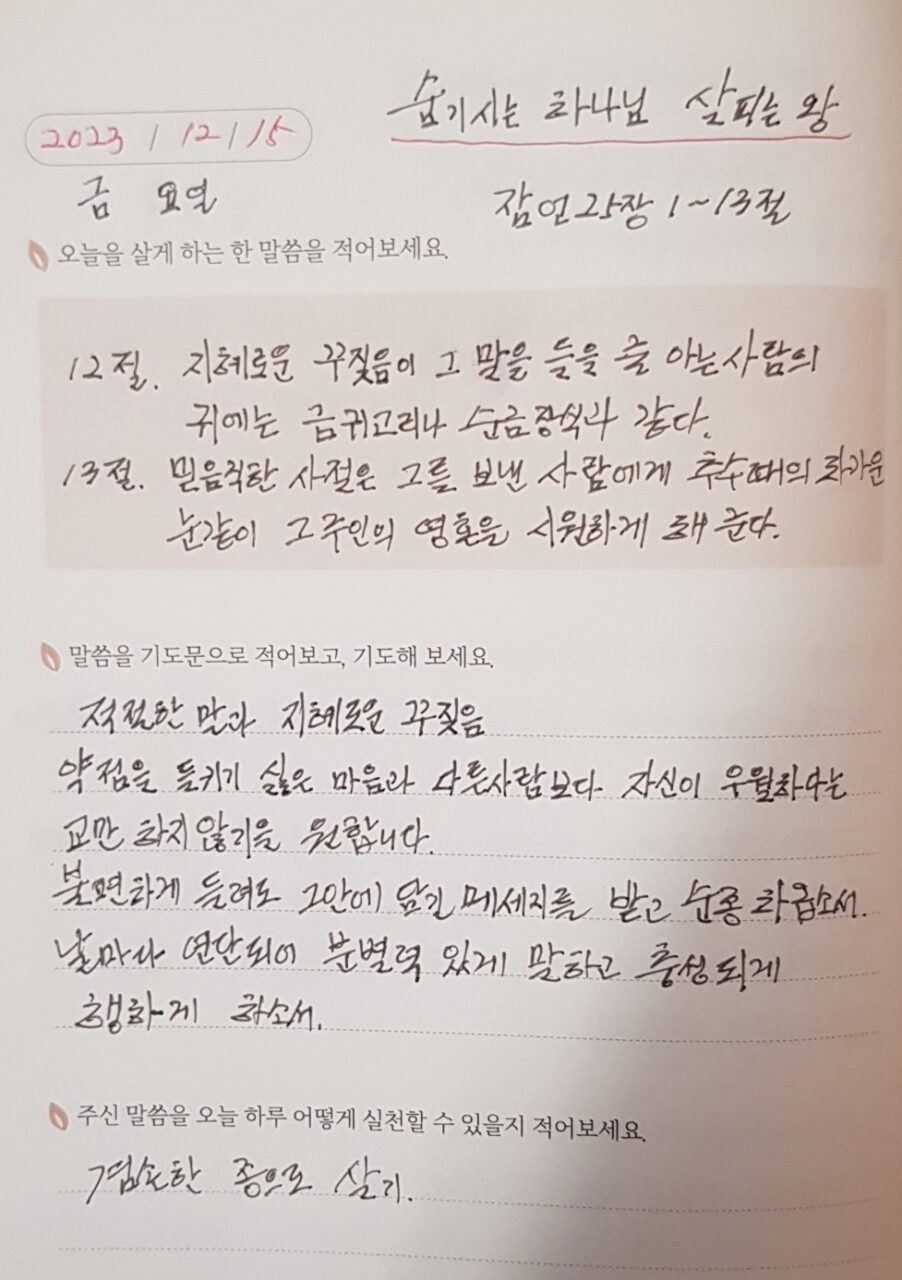 숨기시는 하나님 살피는 왕
2023 / 12 / 15
금 요일
잠언 25장 1~13절
오늘을 살게 하는 한 말씀을 적어보세요.
12절. 지혜로운 꾸짖음이 그 말을 들을 줄 아는사람의
귀에는 금귀고리나 순금장식과 같다.
13절. 믿음직한 사절은 그를 보낸 사람에게 추수때의 차가운
눈같이 그 주인의 영혼을 시원하게 해 준다.
말씀을 기도문으로 적어보고, 기도해 보세요.
적절한 말과 지혜로운 꾸짖음
약점을 들키기 싫은 마음과 다른사람보다 자신이 우월하다는
교만 하지않기를 원합니다.
불편하게 들려도 그안에 담긴 메세지를 받고 순종 하옵소서.
날마다 연단되어 분별력 있게 말하고 충성되게
행하게 하소서.
주신 말씀을 오늘 하루 어떻게 실천할 수 있을지 적어보세요.
겸손한 종으로 살기.